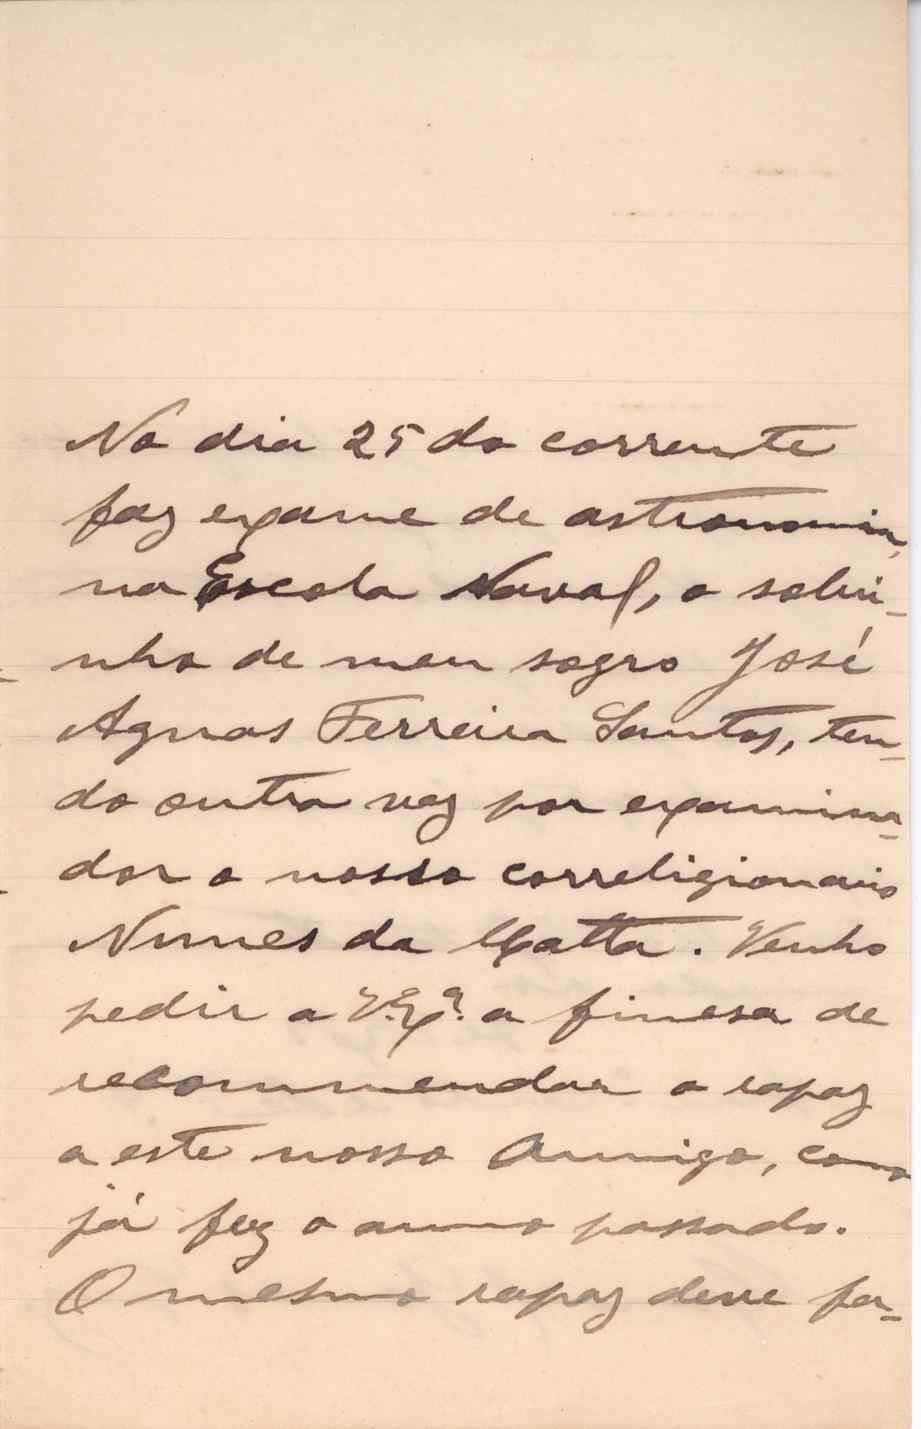 No dia 25 do corrente
faz exame de astronomia,
na Escola Naval, o sobri-
nho de meu sogro José
Aguas Ferreira Santos, ten-
do outra vez por examina-
dor o nosso correligionario
Nunes da Matta. Venho
pedir a V. Exª. a finesa de
recommendar o rapaz
a este nosso Amigo, como
já fez o anno passado.
O mesmo rapaz deve fa-